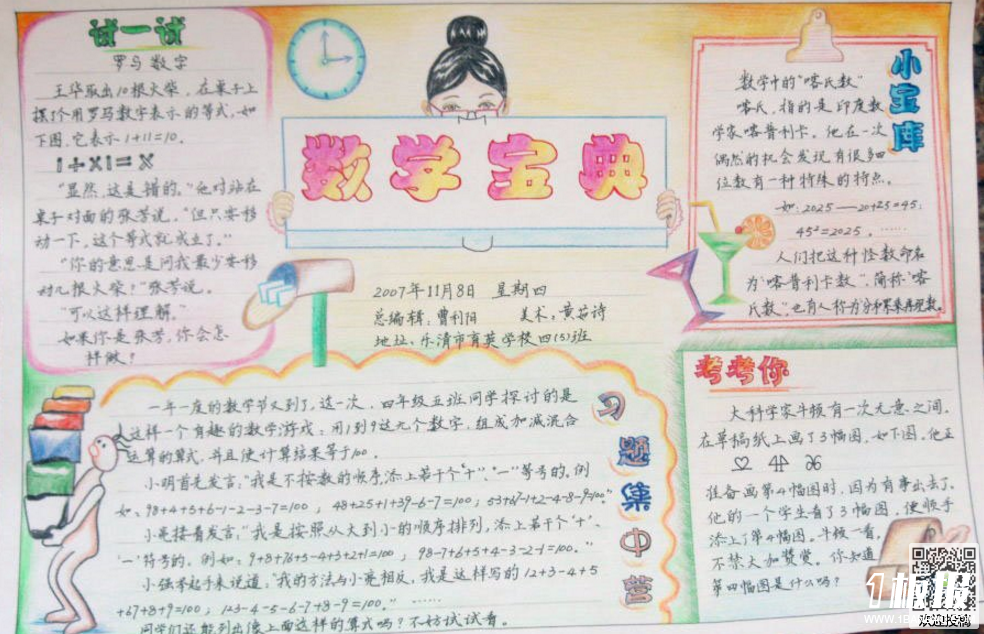 试一试
罗马数字
王华取出10根火柴，在桌子上
摆1个用罗马数字表示的等式，如
下图，它表示1+11=10。
I+XI=X
"显然，这是错的。"他对站在
桌子对面的张芳说。"但只要移
动一下，这个等式就成立了。"
"你的意思是问我最少要移
动几根火柴？"张芳说。
"可以这样理解。"
如果你是张芳，你会怎
样做？
数学宝典
2007年11月8日 星期四
总编辑：曹利阳 美术：黄茹诗
地址：乐清市育英学校四(5)班
小宝库
数学中的"喀氏数"
喀氏，指的是印度数
学家喀普利卡。他在一次
偶然的机会发现有很多四
位数有一种特殊的特点。
如：2025——20+25=45；
45²=2025。……
人们把这种怪数命名
为"喀普利卡数"，简称"喀
氏数"。也有人称为
习题集中营
一年一度的数学节又到了，这一次，四年级五班同学探讨的是
这样一个有趣的数学游戏：用1到9这九个数字，组成加减混合
运算的算式，并且使计算结果等于100。
小明首先发言："我是不按数的顺序添上若干个"+"、"-"等号的。例
如：98+4+5+6-1-2-3-7=100；48+25+1+39-6-7=100；53+67-1+2-4-8-9=100"
小亮接着发言："我是按照从大到小的顺序排列，添上若干个"+"、
"-"符号的，例如：9+8+76+5-4+3+2+1=100；98-7+6+5+4-3-2-1=100。"
小强举起手来说道："我的方法与小亮相反，我是这样写的12+3-4+5
+67+8+9=100；123-4-5-6-7+8-9=100。"……
同学们还能列出像上面这样的算式吗？不妨试试看。
考考你
大科学家牛顿有一次无意之间，
在草稿纸上画了3幅图，如下图。他正
准备画第4幅图时，因为有事出去了。
他的一个学生看了3幅图，便顺手
添上了第4幅图。牛顿一看，
不禁大加赞赏。你知道
第四幅图是什么吗？
欢迎投稿